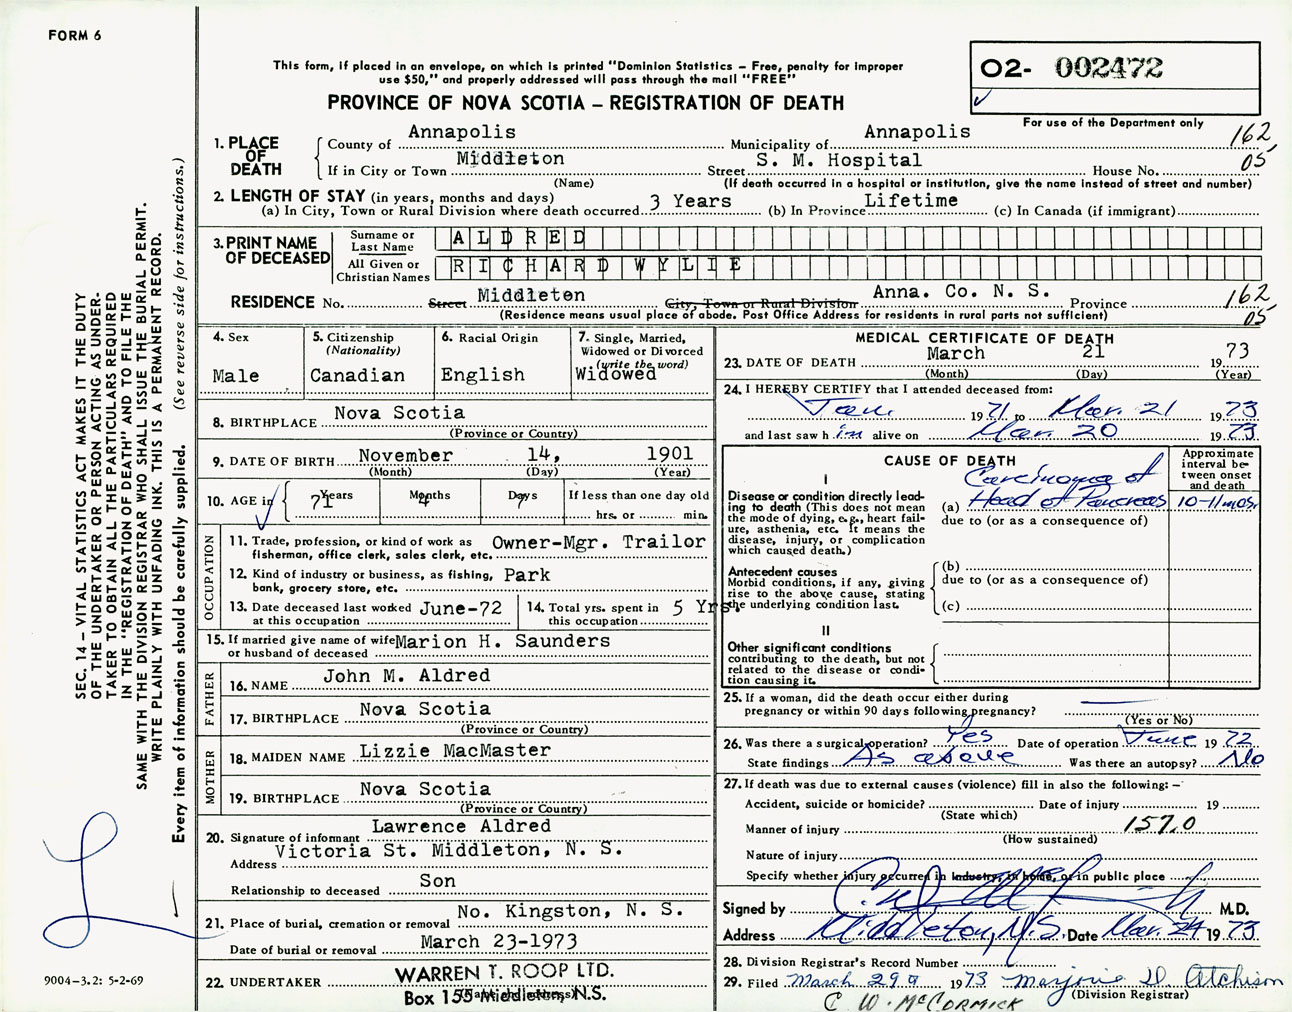 FORM 6
This form, if placed in an envelope, on which is printed "Dominion Statistics – Free, penalty for improper
use $50," and properly addressed will pass through the mail "FREE"
PROVINCE OF NOVA SCOTIA – REGISTRATION OF DEATH
O2- 002472
For use of the Department only
1. PLACE OF DEATH
County of Annapolis Municipality of Annapolis 162
If in City or Town Middleton Street S. M. Hospital House No. 05
(Name) (If death occurred in a hospital or institution, give the name instead of street and number)
2. LENGTH OF STAY (in years, months and days)
(a) In City, Town or Rural Division where death occurred 3 Years (b) In Province Lifetime (c) In Canada (if immigrant)
3. PRINT NAME OF DECEASED
Surname or Last Name ALDRED
All Given or Christian Names RICHARD WYLIE
RESIDENCE No. Street Middleton City, Town or Rural Division Anna. Co. N. S. Province 162
(Residence means usual place of abode. Post Office Address for residents in rural parts not sufficient) 05
4. Sex
Male
5. Citizenship
(Nationality)
Canadian
6. Racial Origin
English
7. Single, Married,
Widowed or Divorced
(write the word)
Widowed
8. BIRTHPLACE Nova Scotia
(Province or Country)
9. DATE OF BIRTH November 14, 1901
(Month) (Day) (Year)
10. AGE in { Years 71 Months 4 Days 7 If less than one day old
hrs. or min.
OCCUPATION
11. Trade, profession, or kind of work as Owner-Mgr. Trailor
fisherman, office clerk, sales clerk, etc.
12. Kind of industry or business, as fishing, Park
bank, grocery store, etc.
13. Date deceased last worked June-72
at this occupation
14. Total yrs. spent in 5 Yrs.
this occupation
15. If married give name of wife Marion H. Saunders
or husband of deceased
FATHER
16. NAME John M. Aldred
17. BIRTHPLACE Nova Scotia
(Province or Country)
MOTHER
18. MAIDEN NAME Lizzie MacMaster
19. BIRTHPLACE Nova Scotia
(Province or Country)
20. Signature of informant Lawrence Aldred
Address Victoria St. Middleton, N. S.
Relationship to deceased Son
21. Place of burial, cremation or removal No. Kingston, N. S.
Date of burial or removal March 23-1973
22. UNDERTAKER WARREN T. ROOP LTD.
Box 155 Middleton, N.S.
MEDICAL CERTIFICATE OF DEATH
23. DATE OF DEATH March 21 1973
(Month) (Day) (Year)
24. I HEREBY CERTIFY that I attended deceased from:
Jan. 1971 to Mar. 21 1973
and last saw him alive on Mar. 20 1973
CAUSE OF DEATH
Approximate interval between onset and death
I
Disease or condition directly leading to death (This does not mean the mode of dying, e.g., heart failure, asthenia, etc. It means the disease, injury, or complication which caused death.)
(a) Carcinoma of Head of Pancreas 10-11 mos.
due to (or as a consequence of)
Antecedent causes
Morbid conditions, if any, giving rise to the above cause, stating the underlying condition last.
(b)
due to (or as a consequence of)
(c)
II
Other significant conditions
contributing to the death, but not related to the disease or condition causing it.
25. If a woman, did the death occur either during
pregnancy or within 90 days following pregnancy?
(Yes or No)
26. Was there a surgical operation? Yes Date of operation June 1972
State findings As above Was there an autopsy? No
27. If death was due to external causes (violence) fill in also the following: –
Accident, suicide or homicide? Date of injury 19
(State which)
Manner of injury 157.0
(How sustained)
Nature of injury
Specify whether injury occurred in industry, in home, or in public place
Signed by M.D.
Address Middleton, N.S. Date Mar. 24 1973
28. Division Registrar's Record Number
29. Filed March 29 1973 Marjorie D. Atchison
(Division Registrar)
C. W. McCORMICK
SEC. 14 – VITAL STATISTICS ACT MAKES IT THE DUTY
OF THE UNDERTAKER OR PERSON ACTING AS UNDER-
TAKER TO OBTAIN ALL THE PARTICULARS REQUIRED
IN THE "REGISTRATION OF DEATH" AND TO FILE THE
SAME WITH THE DIVISION REGISTRAR WHO SHALL ISSUE THE BURIAL PERMIT.
WRITE PLAINLY WITH UNFADING INK. THIS IS A PERMANENT RECORD.
Every item of information should be carefully supplied. (See reverse side for instructions.)
9004-3.2: 5-2-69